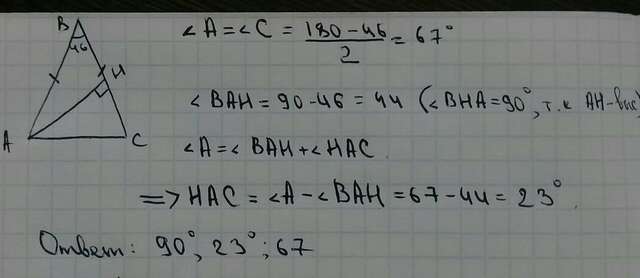 B
46
H
A
C
∠A=∠C = (180-46)/2 = 67°
∠BAH = 90-46 = 44 (∠BHA=90°, т.к AH-выс)
∠A=∠BAH+∠HAC
=> HAC = ∠A-∠BAH = 67-44 = 23°.
Ответ: 90°, 23°; 67